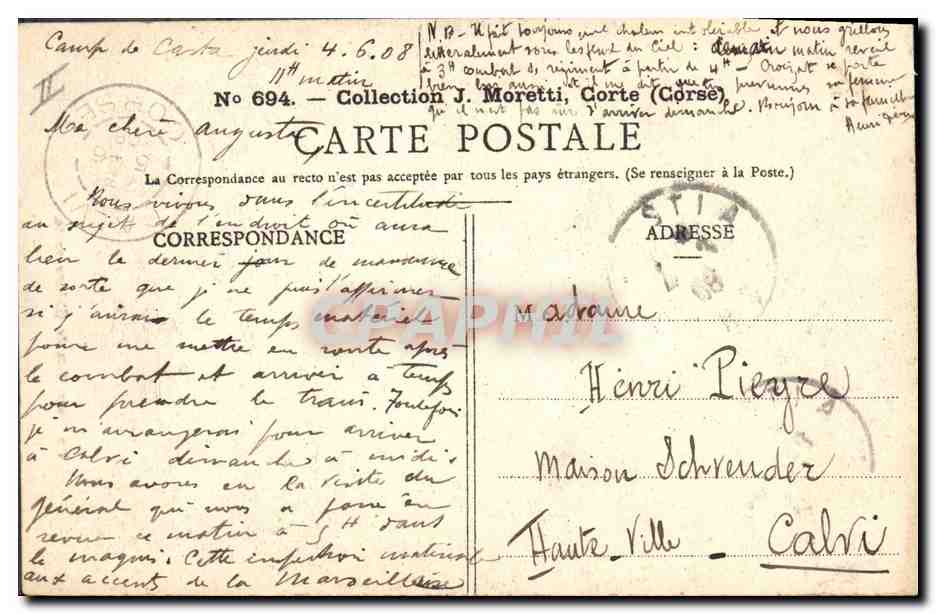 II
Camp de Casta jeudi 4.6.08
11H matin
N.B - Il fait toujours une chaleur intolérable et nous grillons
littéralement sous les feux du Ciel : demain matin reveil
à 3H combat de régiment à partir de 4H - Croizat se porte
bien lui aussi et me dit que tu previennes sa femme
qu'il n'est pas sur d'arriver dimanche. Bonjour à la famille
Henri
No 694. — Collection J. Moretti, Corte (Corse)
Ma chère Augusta,
CARTE POSTALE
La Correspondance au recto n'est pas acceptée par tous les pays étrangers. (Se renseigner à la Poste.)
CORRESPONDANCE
Nous vivons dans l'incertitude
au sujet de l'endroit où aura
lieu le dernier jour de manœuvre
de sorte que je ne puis affirmer
si j'aurai le temps matériel
pour me mettre en route après
le combat et arriver à temps
pour prendre le train. Toutefois
je m'arrangerai pour arriver
à Calvi dimanche à midi.
Nous avons eu la visite du
général qui nous a passé en
revue ce matin à 5H dans
le maquis. Cette
aux accents de la Marseillaise
ADRESSE
Madame
Henri Pieyre
Maison Schrender
Haute-Ville - Calvi
CPAPHIL